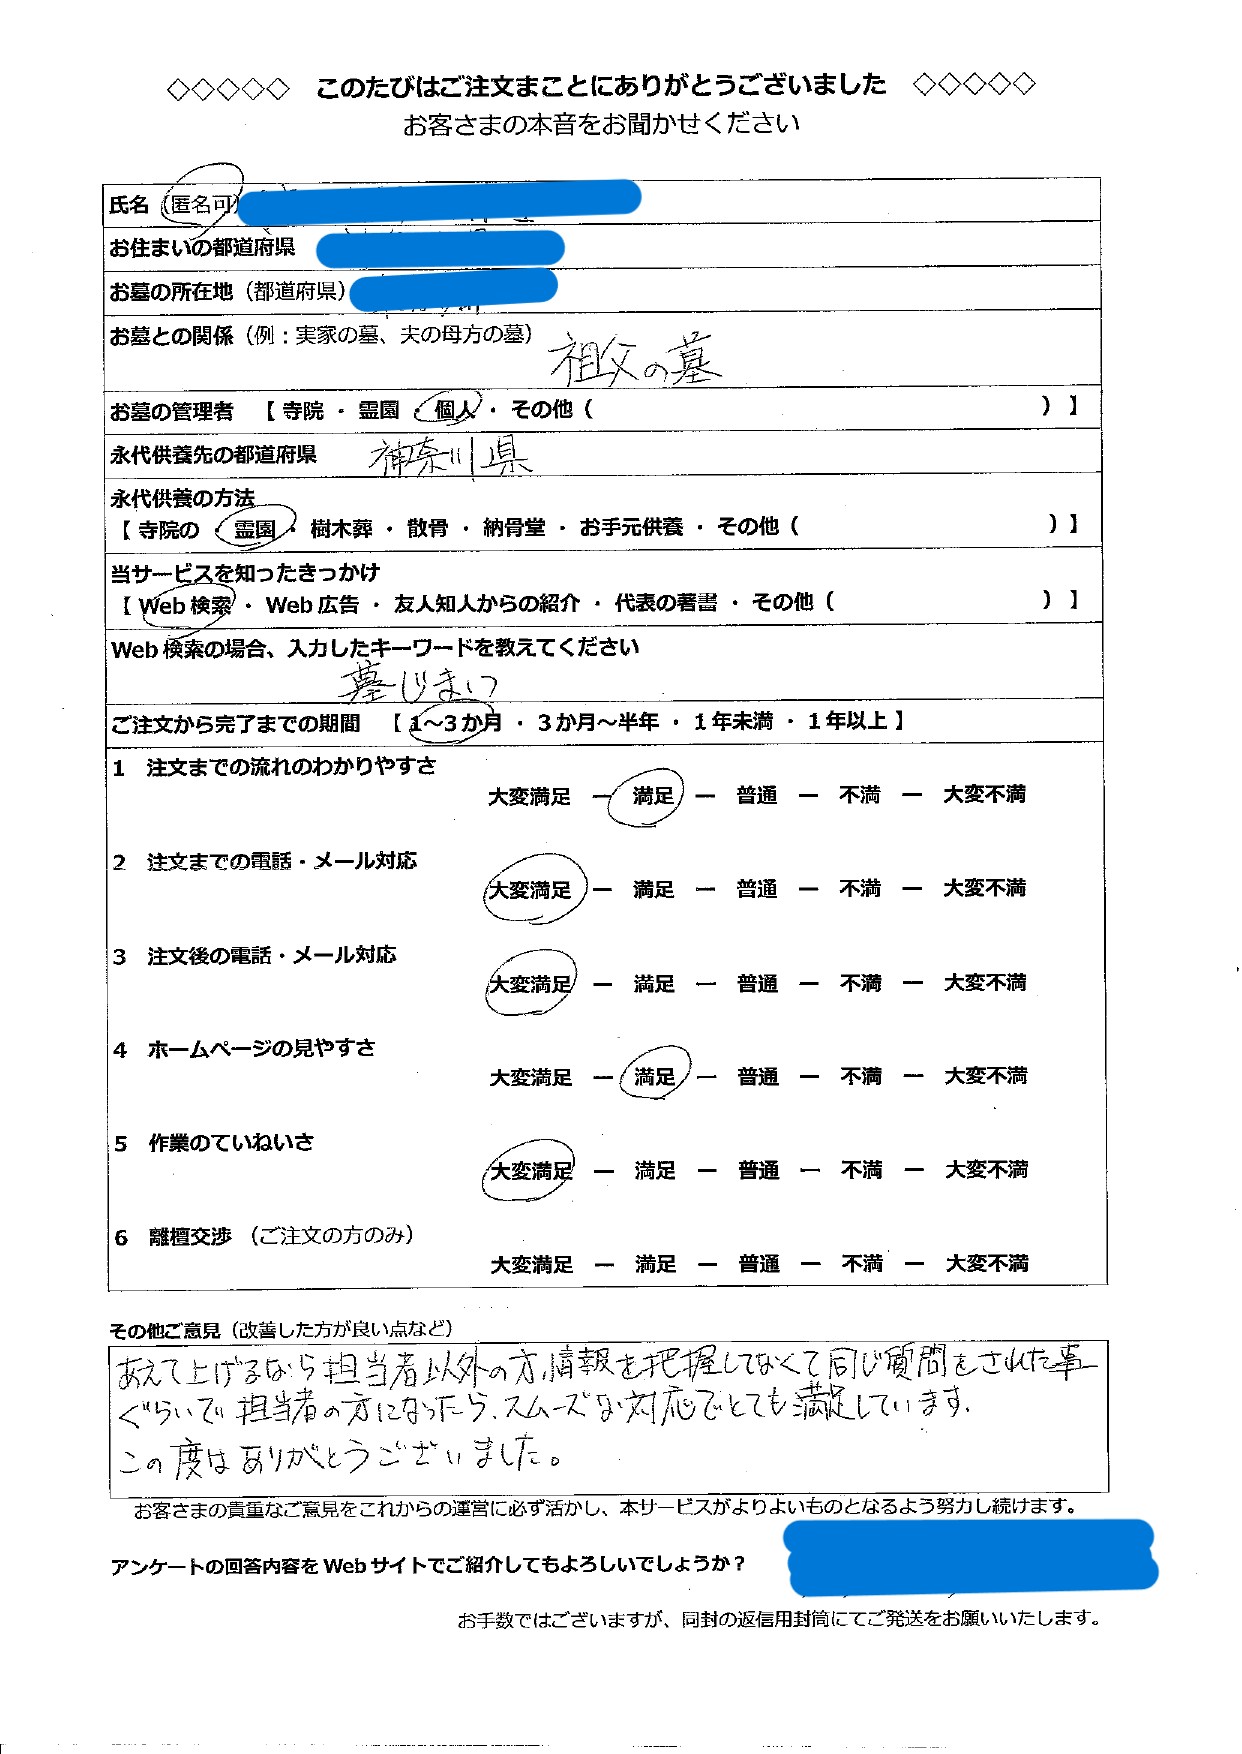 ◇◇◇◇◇ このたびはご注文まことにありがとうございました ◇◇◇◇◇
お客さまの本音をお聞かせください
氏名（匿名可）
お住まいの都道府県
お墓の所在地（都道府県）
お墓との関係（例：実家の墓、夫の母方の墓）
祖父の墓
お墓の管理者 【 寺院 ・ 霊園 ・ 個人 ・ その他（ ）】
永代供養先の都道府県 神奈川県
永代供養の方法
【 寺院の ・ 霊園 ・ 樹木葬 ・ 散骨 ・ 納骨堂 ・ お手元供養 ・ その他（ ）】
当サービスを知ったきっかけ
【 Web 検索 ・ Web 広告 ・ 友人知人からの紹介 ・ 代表の著書 ・ その他（ ）】
Web 検索の場合、入力したキーワードを教えてください
墓じまい
ご注文から完了までの期間 【 1～3 か月 ・ 3 か月～半年 ・ 1 年未満 ・ 1 年以上 】
1 注文までの流れのわかりやすさ
大変満足 ー 満足 ー 普通 ー 不満 ー 大変不満
2 注文までの電話・メール対応
大変満足 ー 満足 ー 普通 ー 不満 ー 大変不満
3 注文後の電話・メール対応
大変満足 ー 満足 ー 普通 ー 不満 ー 大変不満
4 ホームページの見やすさ
大変満足 ー 満足 ー 普通 ー 不満 ー 大変不満
5 作業のていねいさ
大変満足 ー 満足 ー 普通 ー 不満 ー 大変不満
6 離檀交渉 （ご注文の方のみ）
大変満足 ー 満足 ー 普通 ー 不満 ー 大変不満
その他ご意見（改善した方が良い点など）
あえて上げるなら担当者以外の方、情報を把握してなくて同じ質問をされた事
ぐらいで担当者の方になったら、スムーズな対応でとても満足しています。
この度はありがとうございました。
お客さまの貴重なご意見をこれからの運営に必ず活かし、本サービスがよりよいものとなるよう努力し続けます。
アンケートの回答内容を Web サイトでご紹介してもよろしいでしょうか？
お手数ではございますが、同封の返信用封筒にてご発送をお願いいたします。